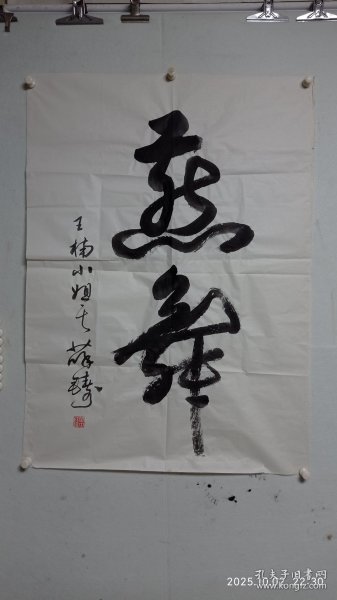 燕舞
王楠小姐正 薛铸
2025.10.02 22:30
孔夫子旧书网